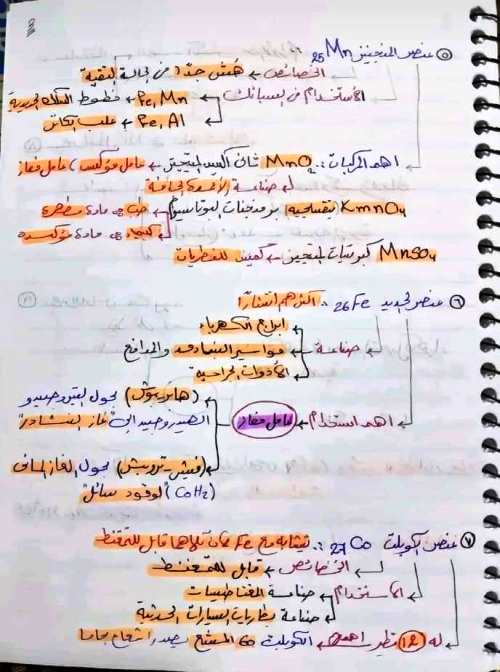 ⑤ عنصر المنجنيز 25Mn
الخصائص ← هش جداً فى الحالة النقية
الأستخدام فى السبائك ← Fe, Mn ← خطوط السكك الحديدية
Fe, Al ← علب الكانز
اهم المركبات: MnO₂ ثانى أكسيد المنجنيز ← عامل مؤكسد / عامل حفاز
صناعة الأعمدة الجافة
KmnO₄ بنفسجية برمنجنات البوتاسيوم ← مادة مطهرة
كيمياء مادة مؤكسدة
MnSO₄ كبريتات المنجنيز ← كمبيد للفطريات
⑥ عنصر الحديد 26Fe : اكثرهم انتشاراً
صناعة ← ابراج الكهرباء
مواسير البنادق والمدافع
الأدوات الجراحية
اهم استخدام ← عامل حفاز ← (هابر-بوش) تحول النيتروجين و
الهيدروجين الى "غاز النشادر"
(فيشر-تروبش) تحول الغاز المائى
(CoH₂) "لوقود سائل"
⑦ عنصر الكوبلت 27Co : يتشابه مع Fe كلاهما قابل للتمغنط
الخصائص ← قابل للتمغنط
الأستخدام ← صناعة المغناطيسات
صناعة بطاريات السيارات الحديثة
له (12) نظير اهمه الكوبلت 60 المشع يصدر اشعاع جاما